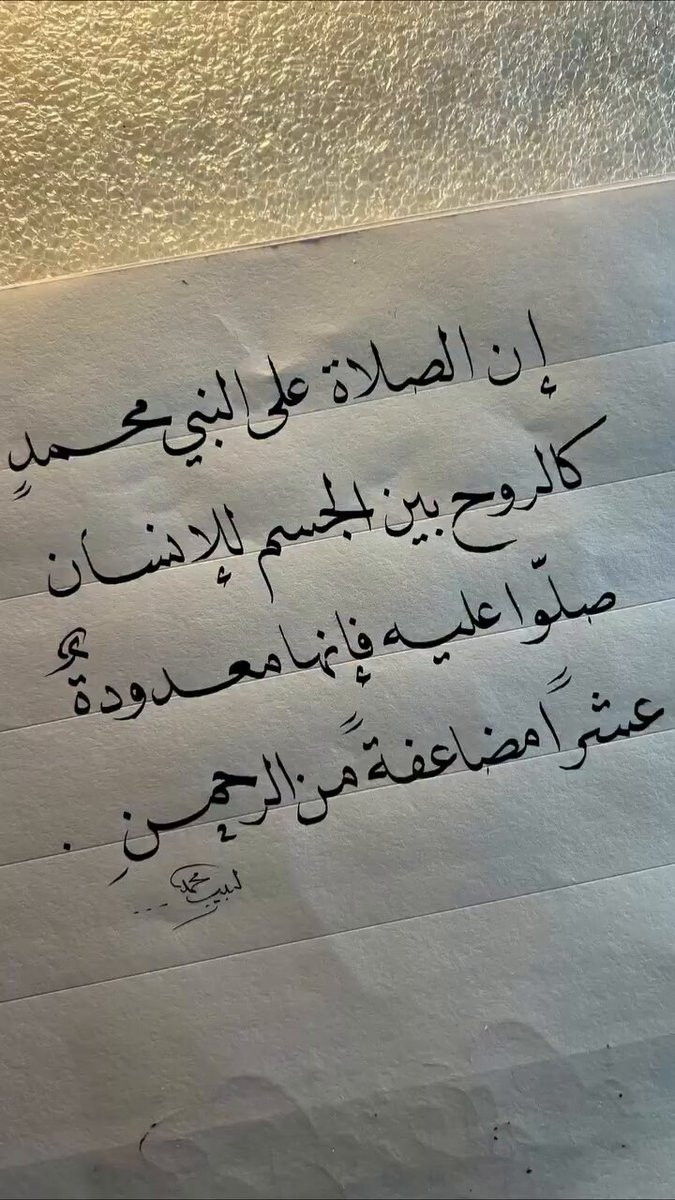 إن الصلاة على النبي محمدٍ
كالروح بين الجسم للإنسان
صلّوا عليه فإنها معدودةٌ
عشراً مضاعفةً من الرحمنِ .
لبيب محمد ...